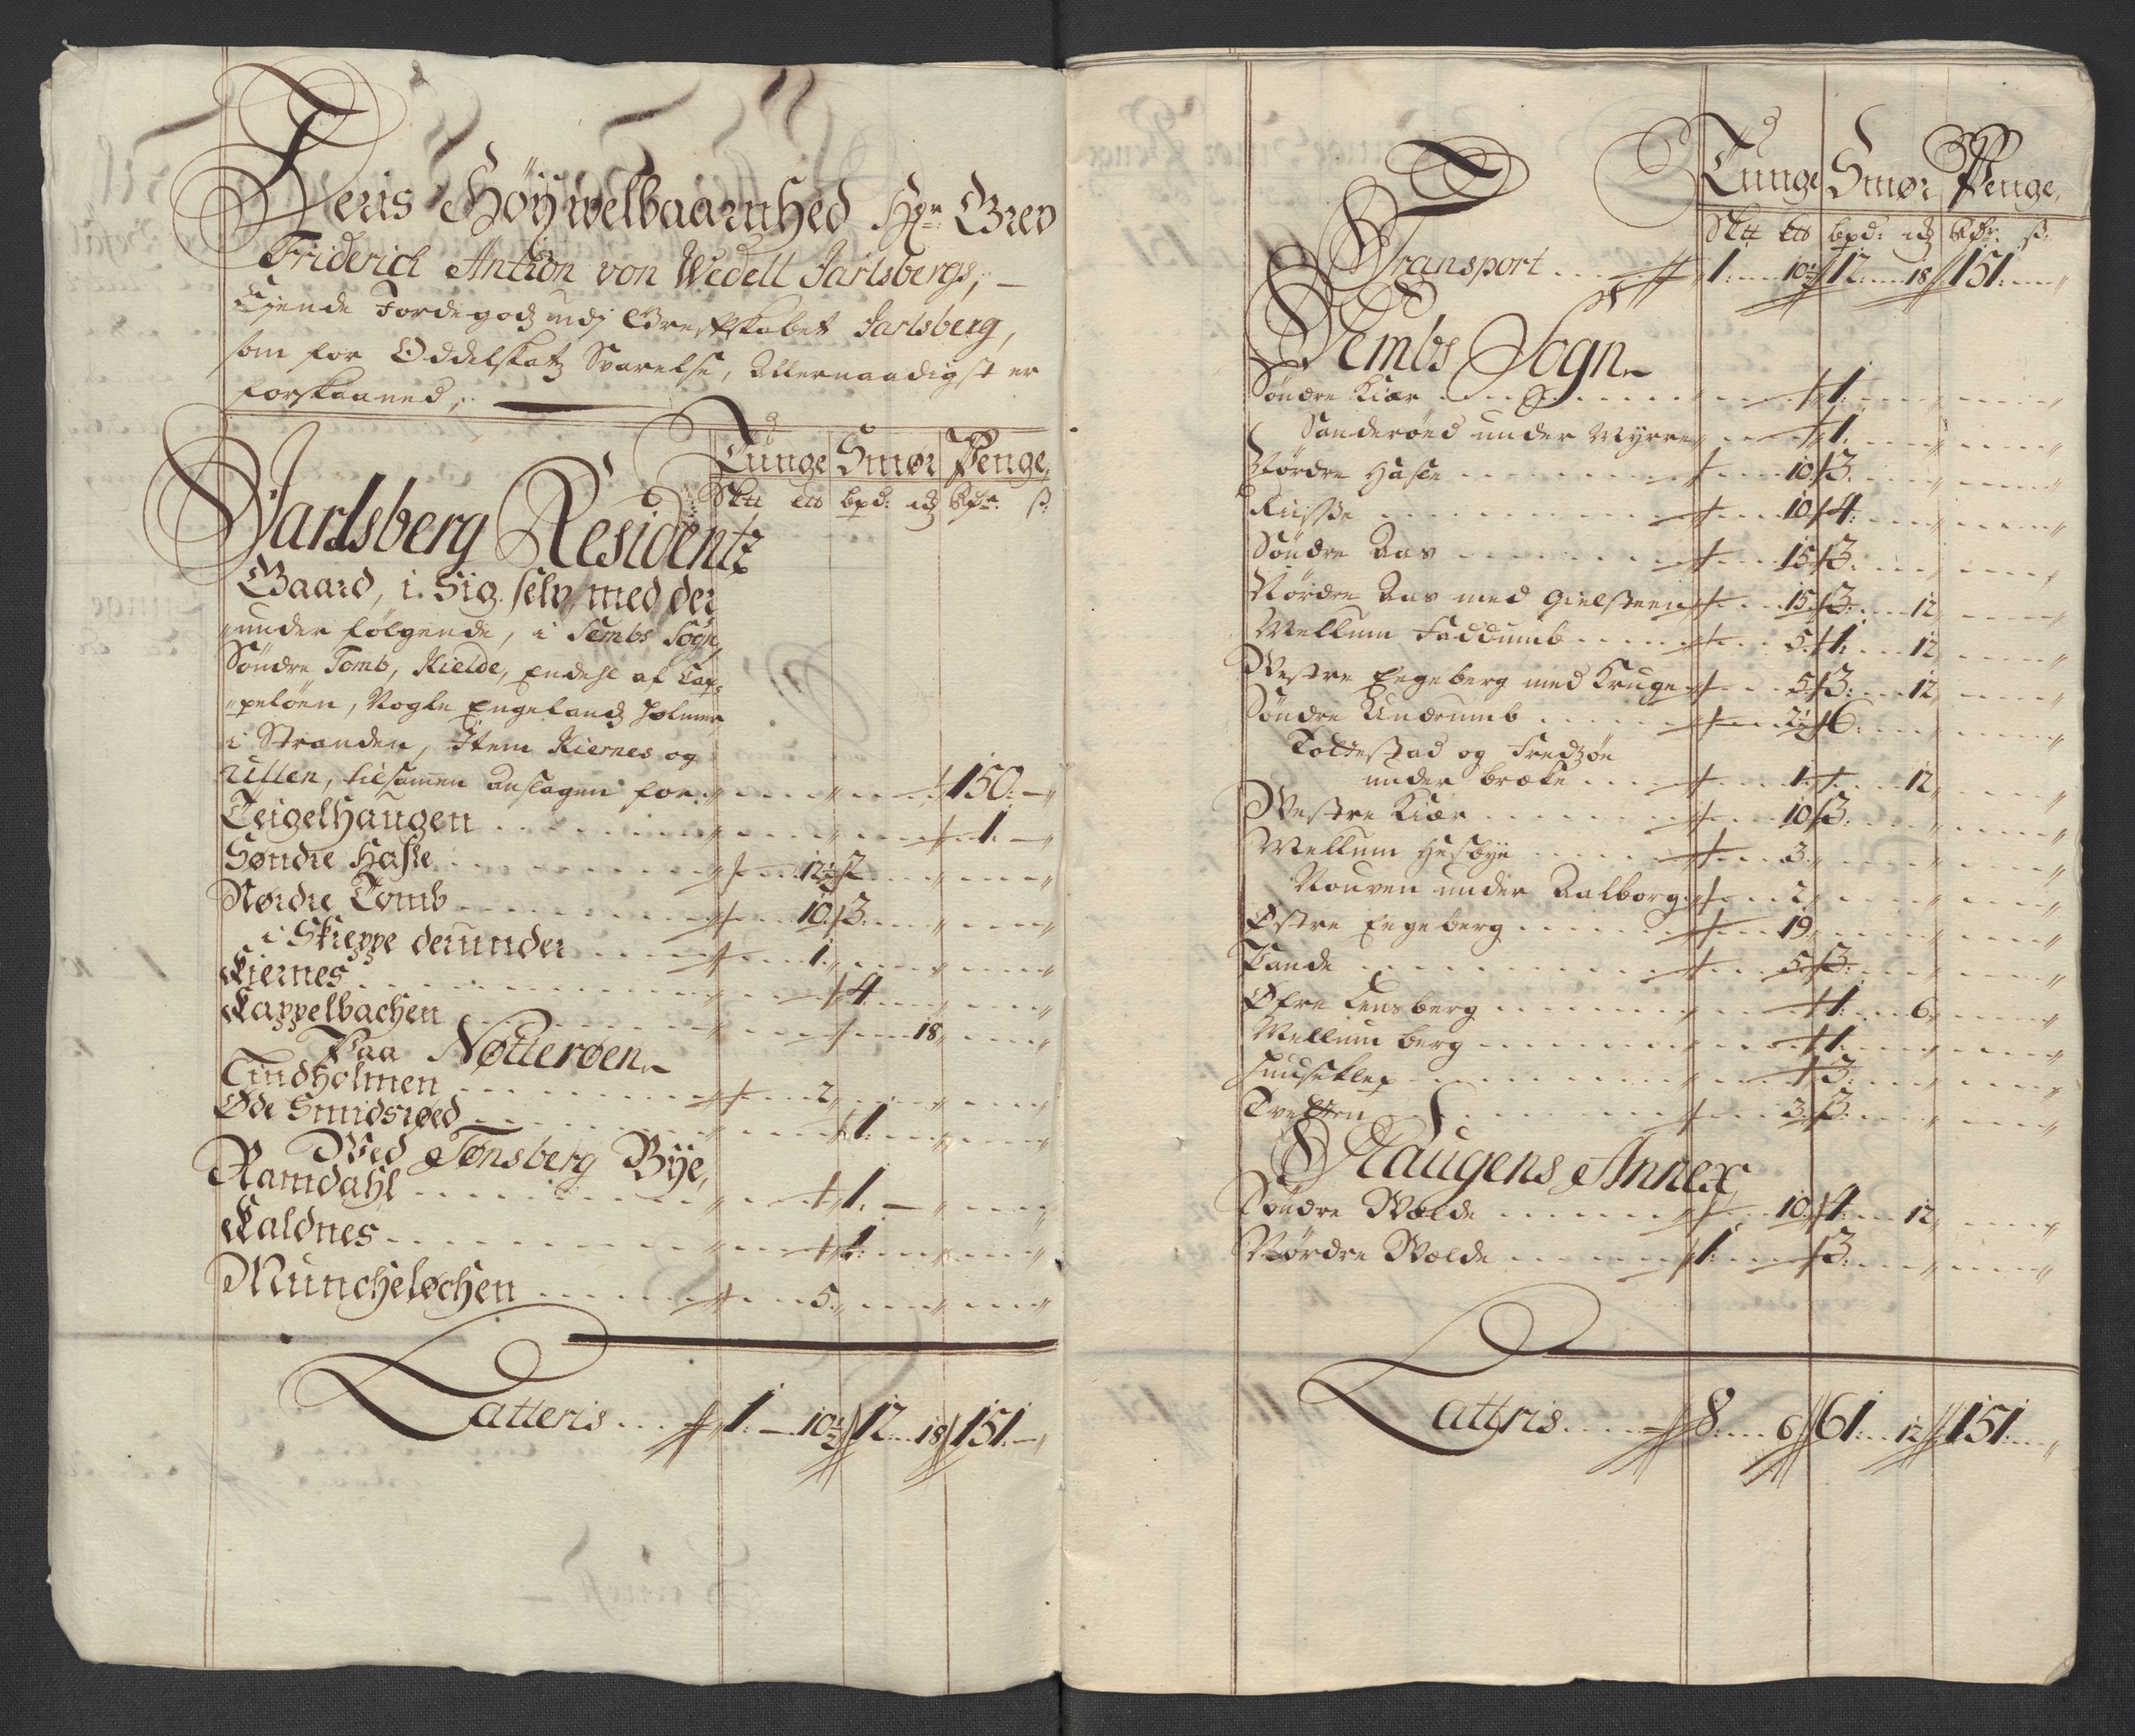 Deris Høÿwelbaarnhed Hr: Grev
Friderich Anthon von Wedell Jarlsbergs,
Ejende Jordegodz udj Grefskabet Jarlsberg,
som for Oddelskatz Svarelse, Allernaadigst er
forskaaned,
Tunge Smør Penge,
Sktt lts bpd: mk Rdr. s:
Jarlsberg Residentz
Gaard, i Sig selv, med der
under følgende, i Sembs Sogn,
Søndre Tomb, Kielde, Endehl af Cap-
pelöen, Nogle Engelandz Holmer
i Stranden, Item Kiernes og
tilsamen anslagen for 150:
Teigelhaugen 1:
Søndre Hasle 12½ 2
Nordre Tomb 10 3
i Skieppe derunder 1
Kiernes 4
Kappelbachen 18
Paa Nøtterøen
Tindholmen 2
Øde Smidsrøed 1
Ved Tønsberg Bÿe,
Ramdahl 1:
Kaldnes 1:
Müncheløchen 5
Latteris 1: 10½ 12 18 151
Tunge Smør Penge,
Sktt lts bpd: mk Rdr. s:
Transport 1: 10½ 12 18 151
Sembs Sogn
Søndre Kiær 1:
Sanderöed under Myrre 1:
Nørdre Hasle 10 3
10 4
Søndre Aas 15 3:
Nørdre Aas med Gielsteen 15 3: 12
Mellum Faddumb 5 1: 12
Westre Eegeberg med Kruge 5 3: 12
Söndre Undrumb 2½ 6:
Toldestad og
under bræke 1 12
Westre Kiær 10 3:
Mellum Hesbye 3
under Aalborg 2
Østre Eegeberg 19
Tande 5 3:
Øfre Lensberg 1: 6
Mellum berg 1:
Huuseklep 3:
Tvetten 3 3:
Slaugens Annex
Søndre Wælde 10 4: 12
Nørdre Wælde 1: 3:
Lattris 8 6 61 12 151